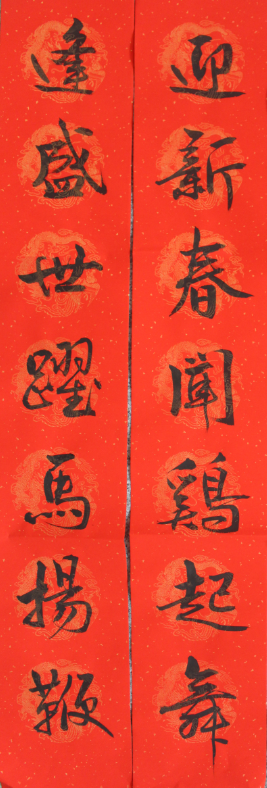 迎新春聞鷄起舞
逢盛世躍馬揚鞭